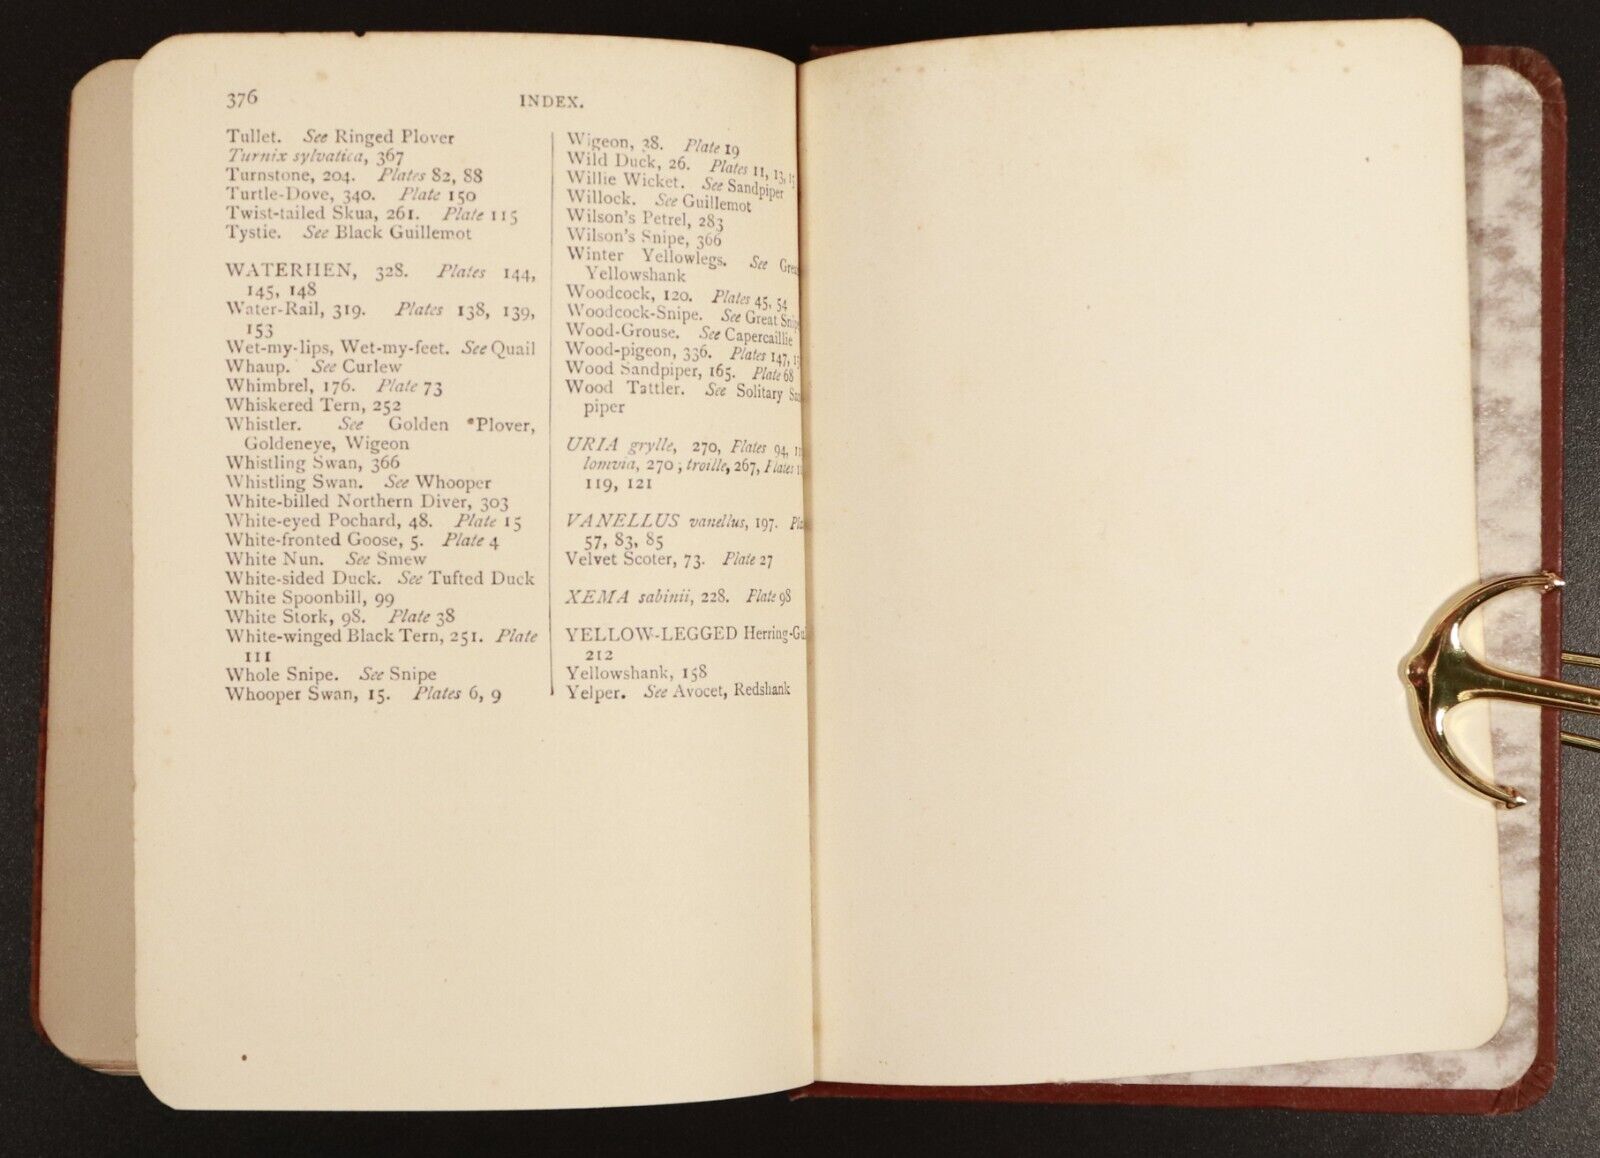 376
INDEX.
Tullet. See Ringed Plover
Turnix sylvatica, 367
Turnstone, 204. Plates 82, 88
Turtle-Dove, 340. Plate 150
Twist-tailed Skua, 261. Plate 115
Tystie. See Black Guillemot
WATERHEN, 328. Plates 144,
145, 148
Water-Rail, 319. Plates 138, 139,
153
Wet-my-lips, Wet-my-feet. See Quail
Whaup. See Curlew
Whimbrel, 176. Plate 73
Whiskered Tern, 252
Whistler. See Golden Plover,
Goldeneye, Wigeon
Whistling Swan, 366
Whistling Swan. See Whooper
White-billed Northern Diver, 303
White-eyed Pochard, 48. Plate 15
White-fronted Goose, 5. Plate 4
White Nun. See Smew
White-sided Duck. See Tufted Duck
White Spoonbill, 99
White Stork, 98. Plate 38
White-winged Black Tern, 251. Plate
111
Whole Snipe. See Snipe
Whooper Swan, 15. Plates 6, 9
Wigeon, 38. Plate 19
Wild Duck, 26. Plates 11, 13,
Willie Wicket. See Sandpiper
Willock. See Guillemot
Wilson's Petrel, 283
Wilson's Snipe, 366
Winter Yellowlegs. See
Yellowshank
Woodcock, 120. Plates 45, 54
Woodcock-Snipe. See Great
Wood-Grouse. See Capercaillie
Wood-pigeon, 336. Plates 147,
Wood Sandpiper, 165. Plate 68
Wood Tattler. See Solitary
piper
URIA grylle, 270, Plates 94,
lomvia, 270; troille, 267, Plates
119, 121
VANELLUS vanellus, 197.
57, 83, 85
Velvet Scoter, 73. Plate 27
XEMA sabinii, 228. Plate 98
YELLOW-LEGGED
212
Yellowshank, 158
Yelper. See Avocet, Redshank